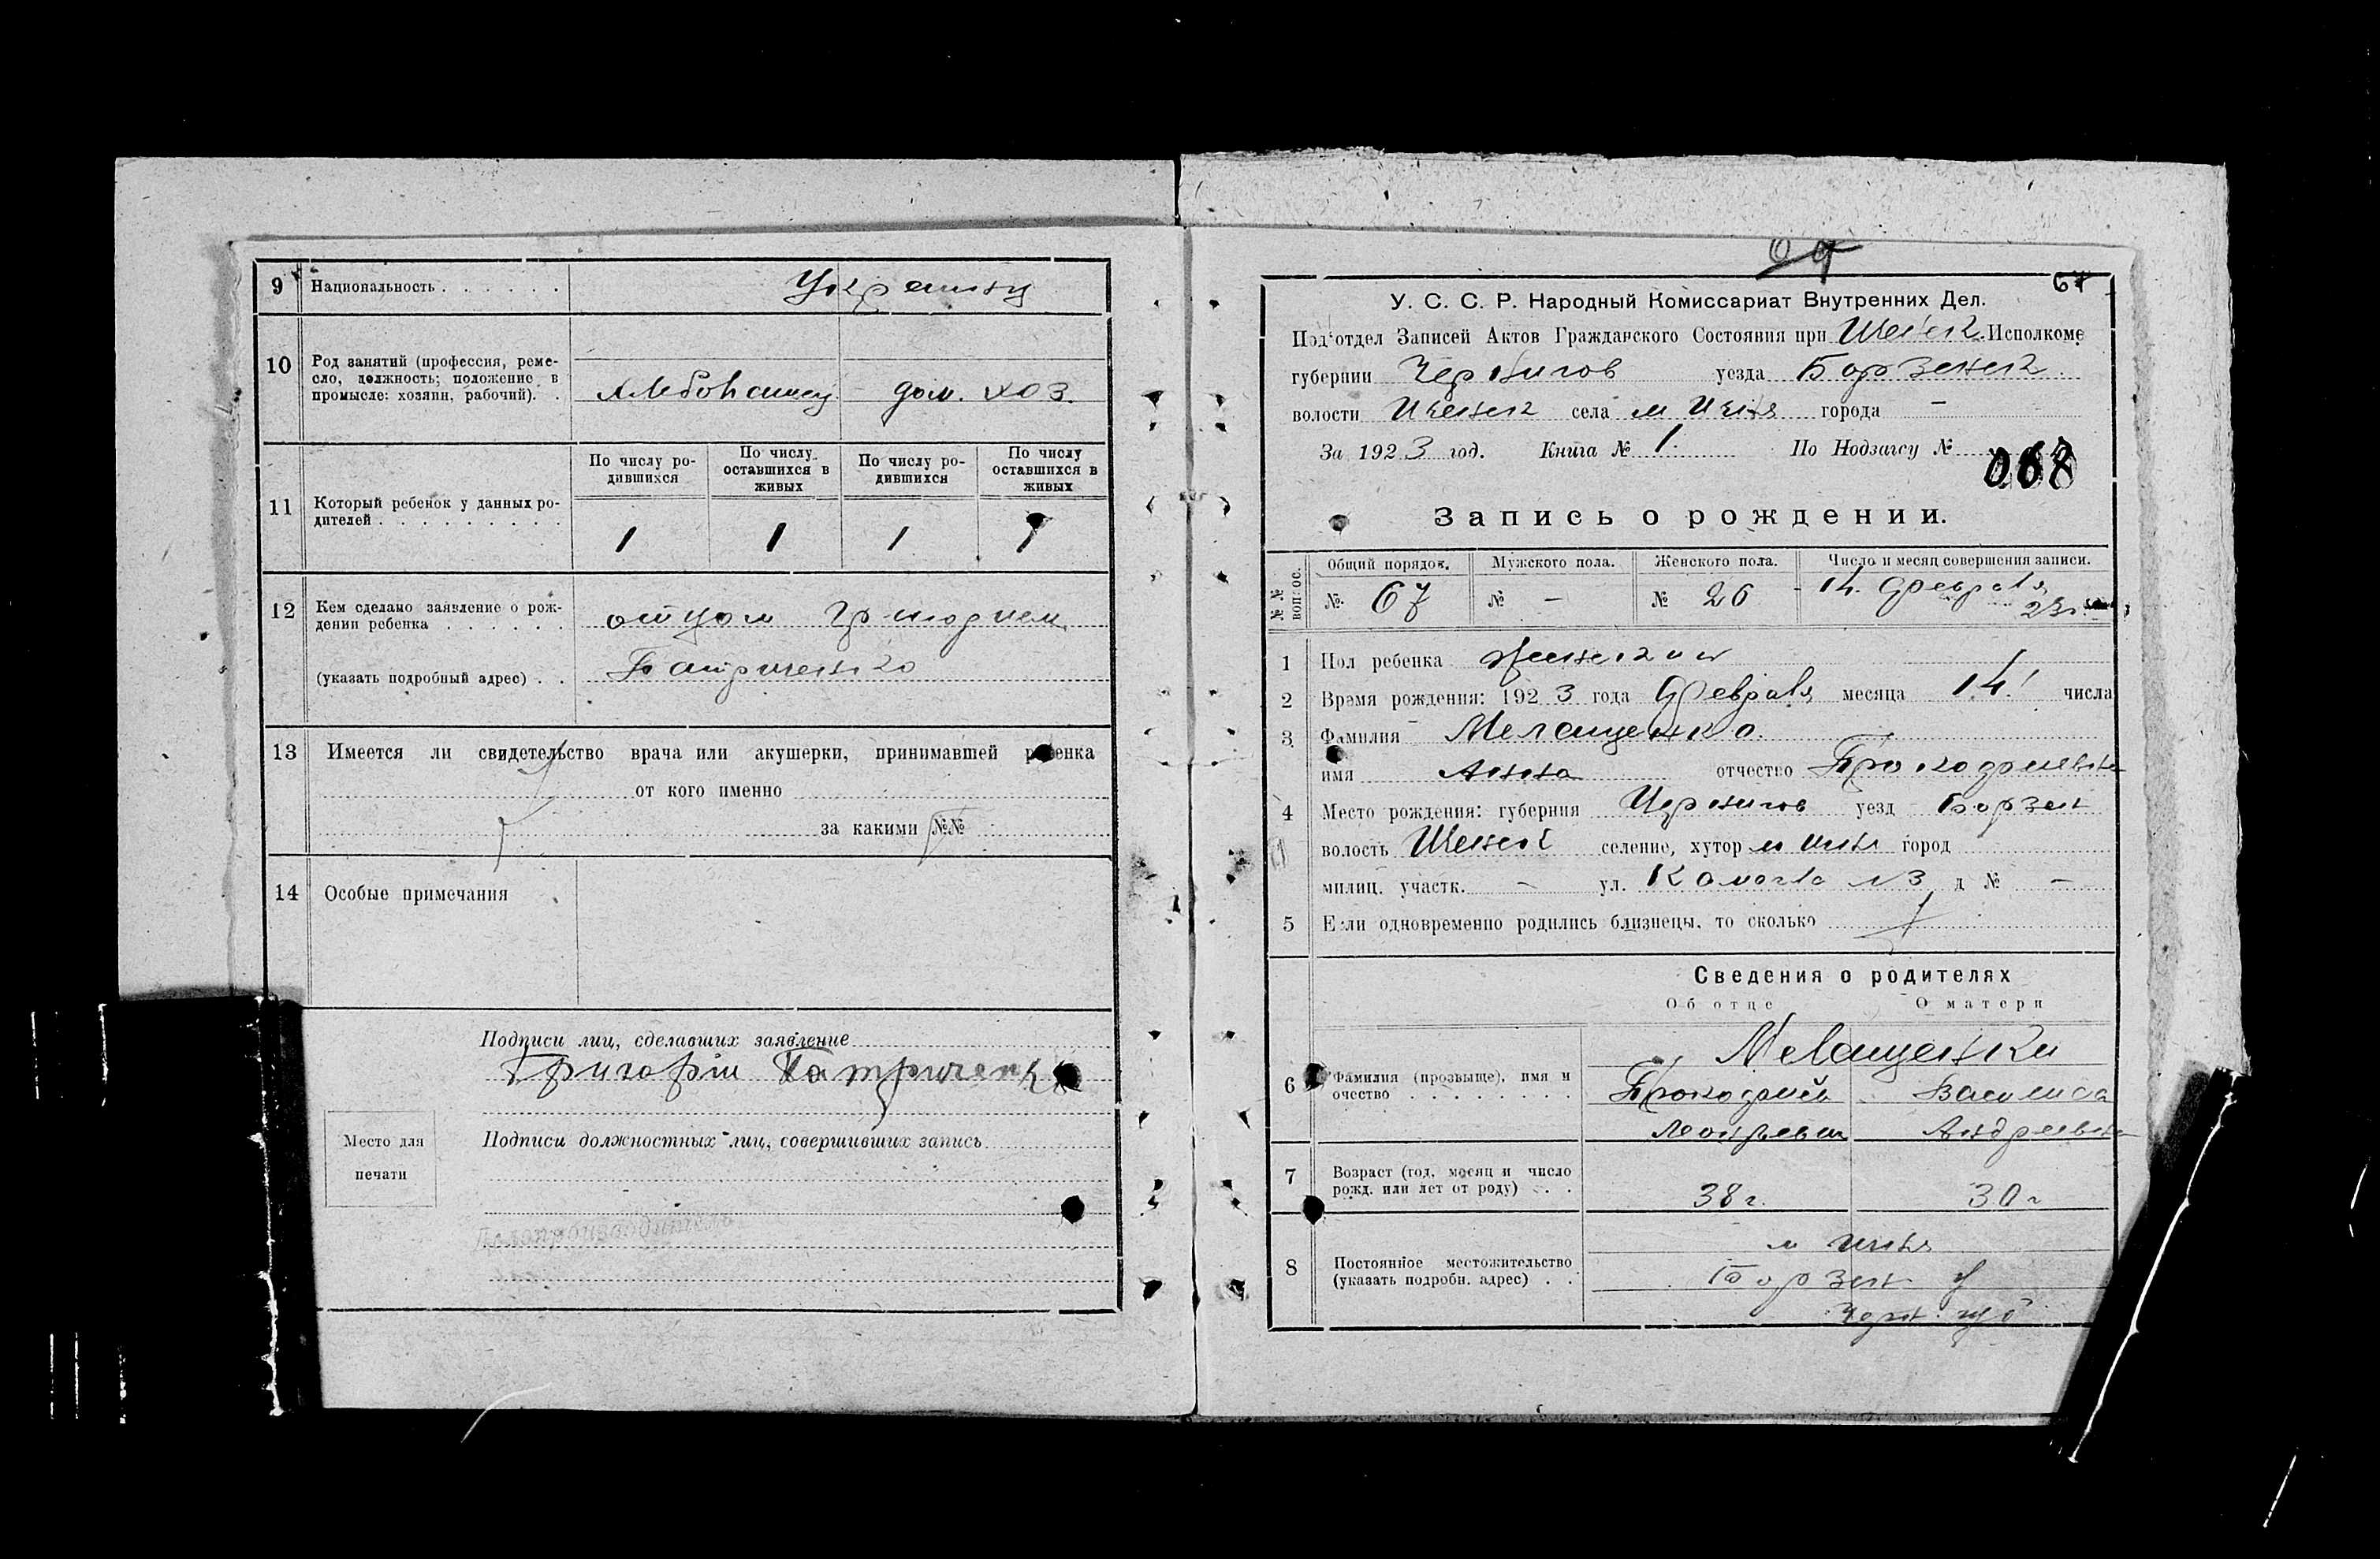 9 Национальность . . . . . . Украинцы
10 Род занятий (профессия, реме-
сло, должность; положение в
промысле: хозяин, рабочий). .
хлебопашец – дом. хоз.
11 Который ребенок у данных ро-
дителей . . . . . . . . . .
По числу ро-
дившихся
По числу
оставшихся в
живых
По числу ро-
дившихся
По числу
оставшихся в
живых
1 1 1 1
12 Кем сделано заявление о рож-
дении ребенка . . . . . .
(указать подробный адрес) . .
отцом
Батриченко
13 Имеется ли свидетельство врача или акушерки, принимавшей ребенка
от кого именно
за какими №№
14 Особые примечания
Подписи лиц, сделавших заявление
Григорій Батриченко
Место для
печати
Подписи должностных лиц, совершивших запись
Делопроизводитель
67
У. С. С. Р. Народный Комиссариат Внутренних Дел.
Под'отдел Записей Актов Гражданского Состояния при Иченск. Исполкоме
губернии Чернигов уезда Борзенск.
волости Иченск села м Ичня города –
За 1923 год. Книга № 1. По Нодзагсу №
068
Запись о рождении.
№№ вопрос.
Общий порядок. Мужского пола. Женского пола. Число и месяц совершения записи.
№ 67 № – № 26 14. февраля
23г
1 Пол ребенка женский
2 Время рождения: 1923 года февраля месяца 14 числа
3 Фамилия Мелащенко.
имя Анна отчество Прокофиевна
4 Место рождения: губерния Чернигов уезд Борзен
волость Иченск селение, хутор м Ичня город
милиц. участк. – ул. №3 д № –
5 Если одновременно родились близнецы, то сколько
Сведения о родителях
Об отце О матери
6 Фамилия (прозвыще), имя и
очество . . . . . . . .
Мелащенки
Прокофий Василиса
Леонтьевич Андреевна
7 Возраст (год, месяц и число
рожд. или лет от роду) . . .
38 г. 30 г
8 Постоянное местожительство
(указать подробн. адрес) . .
м Ичня
Борзен у
Черн. губ